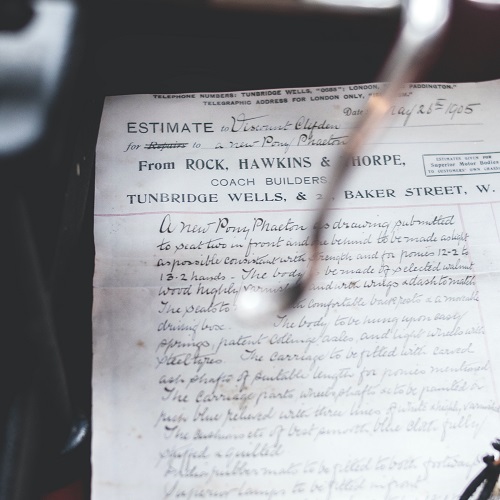 TELEPHONE NUMBERS: TUNBRIDGE WELLS, "0086"; LONDON, PADDINGTON."
TELEGRAPHIC ADDRESS FOR LONDON ONLY,
Date May 26th 1905
ESTIMATE to Viscount Clifden
for Repairs to a new Pony Phaeton
From ROCK, HAWKINS & THORPE,
ESTIMATES GIVEN FOR
Superior Motor Bodies
TO CUSTOMERS' OWN
COACH BUILDERS
TUNBRIDGE WELLS, & BAKER STREET, W.
A new Pony Phaeton as drawing submitted
to seat two in front and one behind to be made as light
as possible consistent with strength and for ponies 12-2 to
13-2 hands - The body to be made of selected walnut
wood highly varnished and with wings & dash to match
The seats to comfortable back rests & a movable
driving box. The body to be hung upon easy
springs, patent Collinge axles and light wheels with
steel tyres. The carriage to be fitted with curved
ash shafts of suitable length for ponies mentioned
The carriage parts wheels shafts &c to be painted in
rich blue relieved with three lines of white
The cushions &c of best smooth blue cloth fully
stuffed & quilted
India rubber mats to be fitted to both footways
Superior lamps to be fitted in front